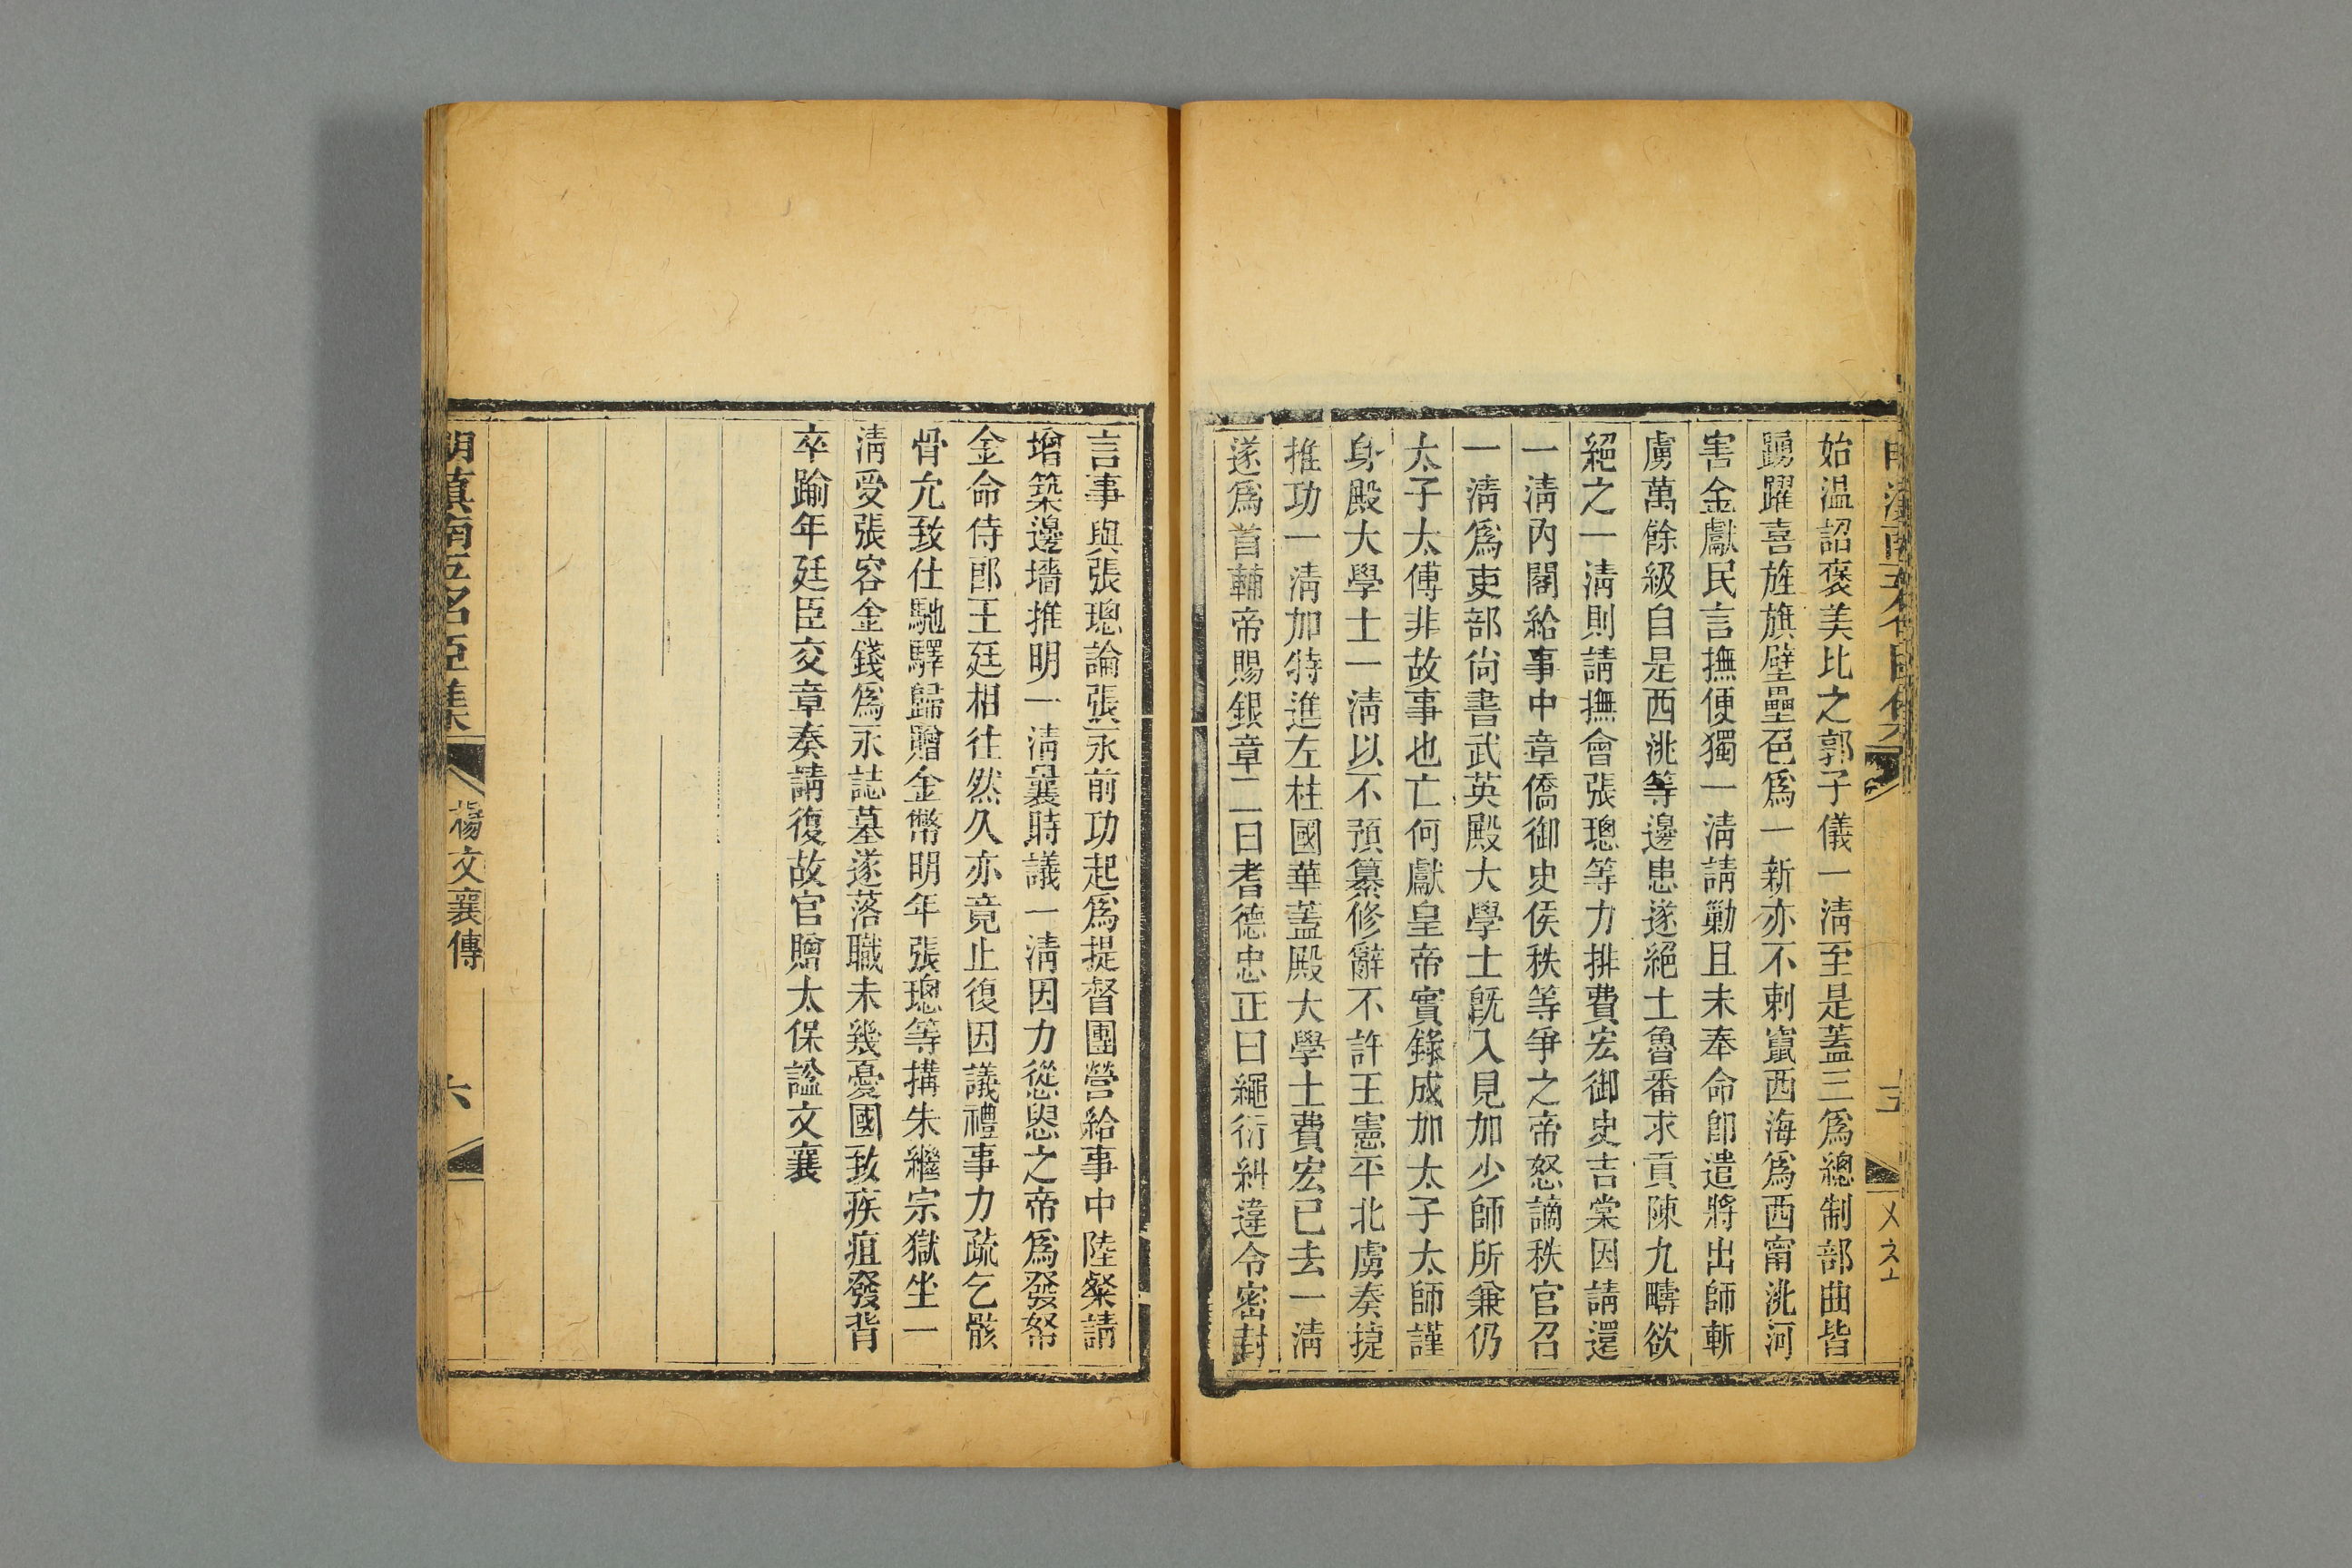 始温詔褒美比之郭子儀一淸至是蓋三爲總制部曲皆
踴躍喜旌旗壁壘色爲一新亦不剌竄西海爲西甯洮河
害金獻民言撫便獨一淸請勦且未奉命卽遣將出師斬
虜萬餘級自是西洮等邊患遂絕土魯番求貢陳九疇欲
絕之一淸則請撫會張璁等力排費宏御史吉棠因請還
一淸內閣給事中章僑御史侯秩等爭之帝怒謫秩官召
一淸爲吏部尙書武英殿大學士旣入見加少師所兼仍
太子太傅非故事也亡何獻皇帝實錄成加太子太師謹
身殿大學士一淸以不預纂修辭不許王憲平北虜奏捷
推功一淸加特進左柱國華蓋殿大學士費宏已去一淸
遂爲首輔帝賜銀章二曰耆德忠正曰繩衍糾違令密封
言事與張璁論張永前功起爲提督團營給事中陸粲請
增築邊墻推明一淸曩時議一淸因力從慂之帝爲發帑
金命侍郎王廷相往然久亦竟止復因議禮事力疏乞骸
骨允致仕馳驛歸贈金幣明年張璁等搆朱繼宗獄坐一
淸受張容金錢爲永誌墓遂落職未幾憂國致疾疽發背
卒踰年廷臣交章奏請復故官贈太保諡文襄
明滇南五名臣集
楊文襄傳
六